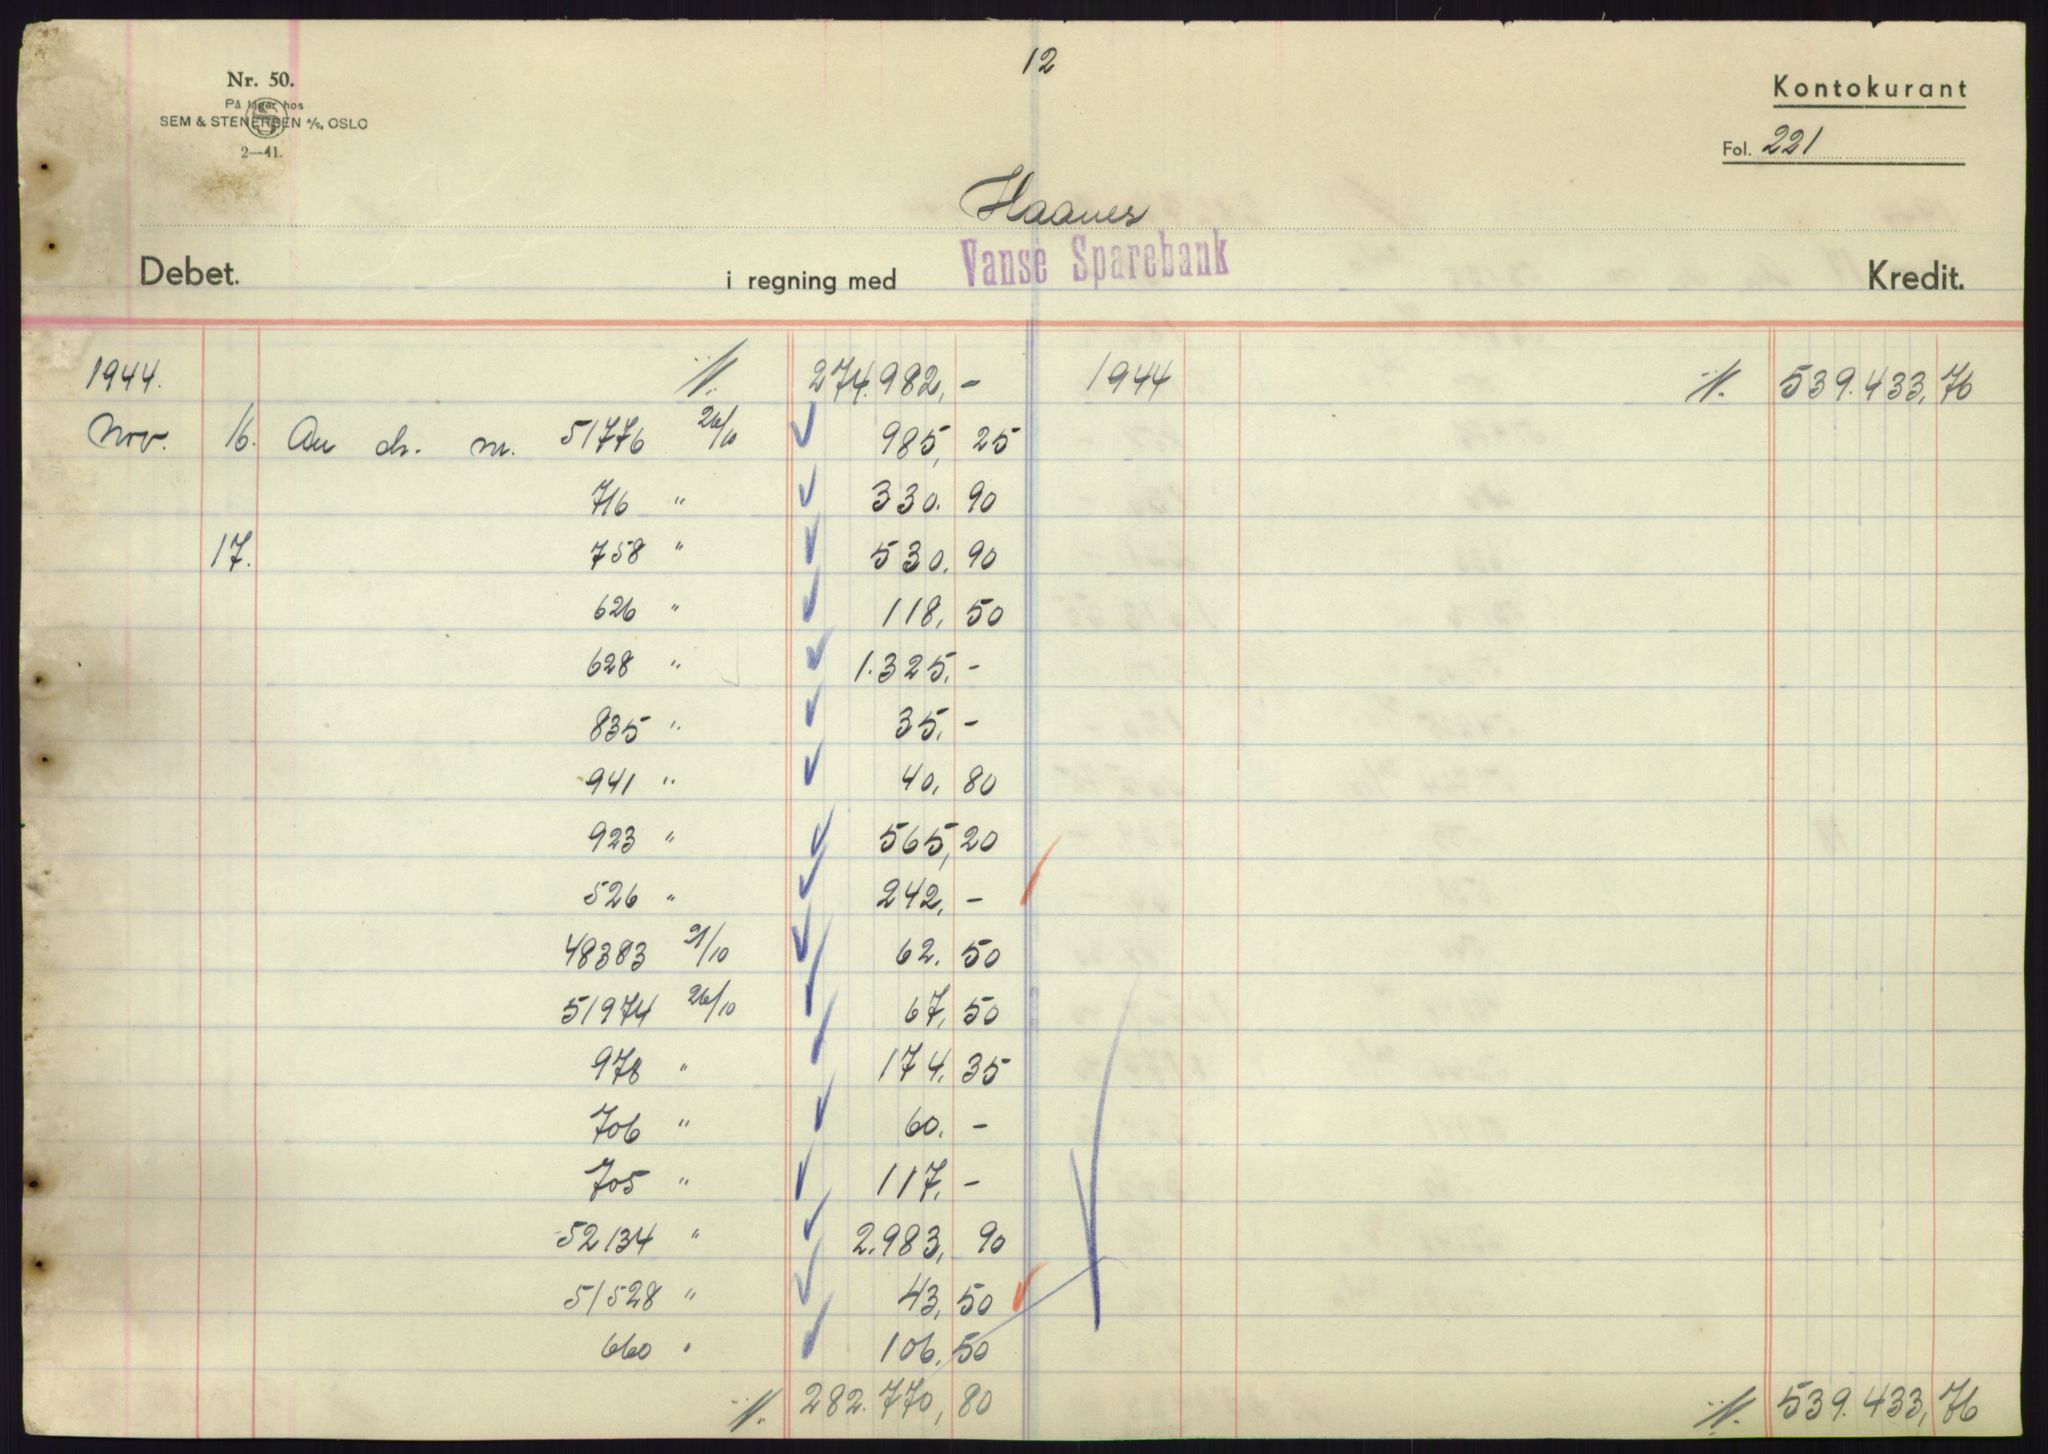 12
Nr. 50.
På lager hos
SEM & STENERSEN A/S, OSLO
2—41.
Kontokurant
Fol. 221
Haanes
Debet. i regning med Vanse Sparebank Kredit.
1944. 274.982,- 1944 539.433,76
Nov. 16. An ch. nr. 51776 26/10 985,25
716 " 330.90
17. 758 " 530.90
626 " 118,50
628 " 1.325,-
835 " 35,-
941 " 40,80
923 " 565,20
526 " 242,-
48383 21/10 62.50
51974 26/10 67,50
978 " 174.35
706 " 60.-
705 " 117,-
52134 " 2.983,90
51528 " 43,50
660 " 106.50
282.770,80 539.433,76